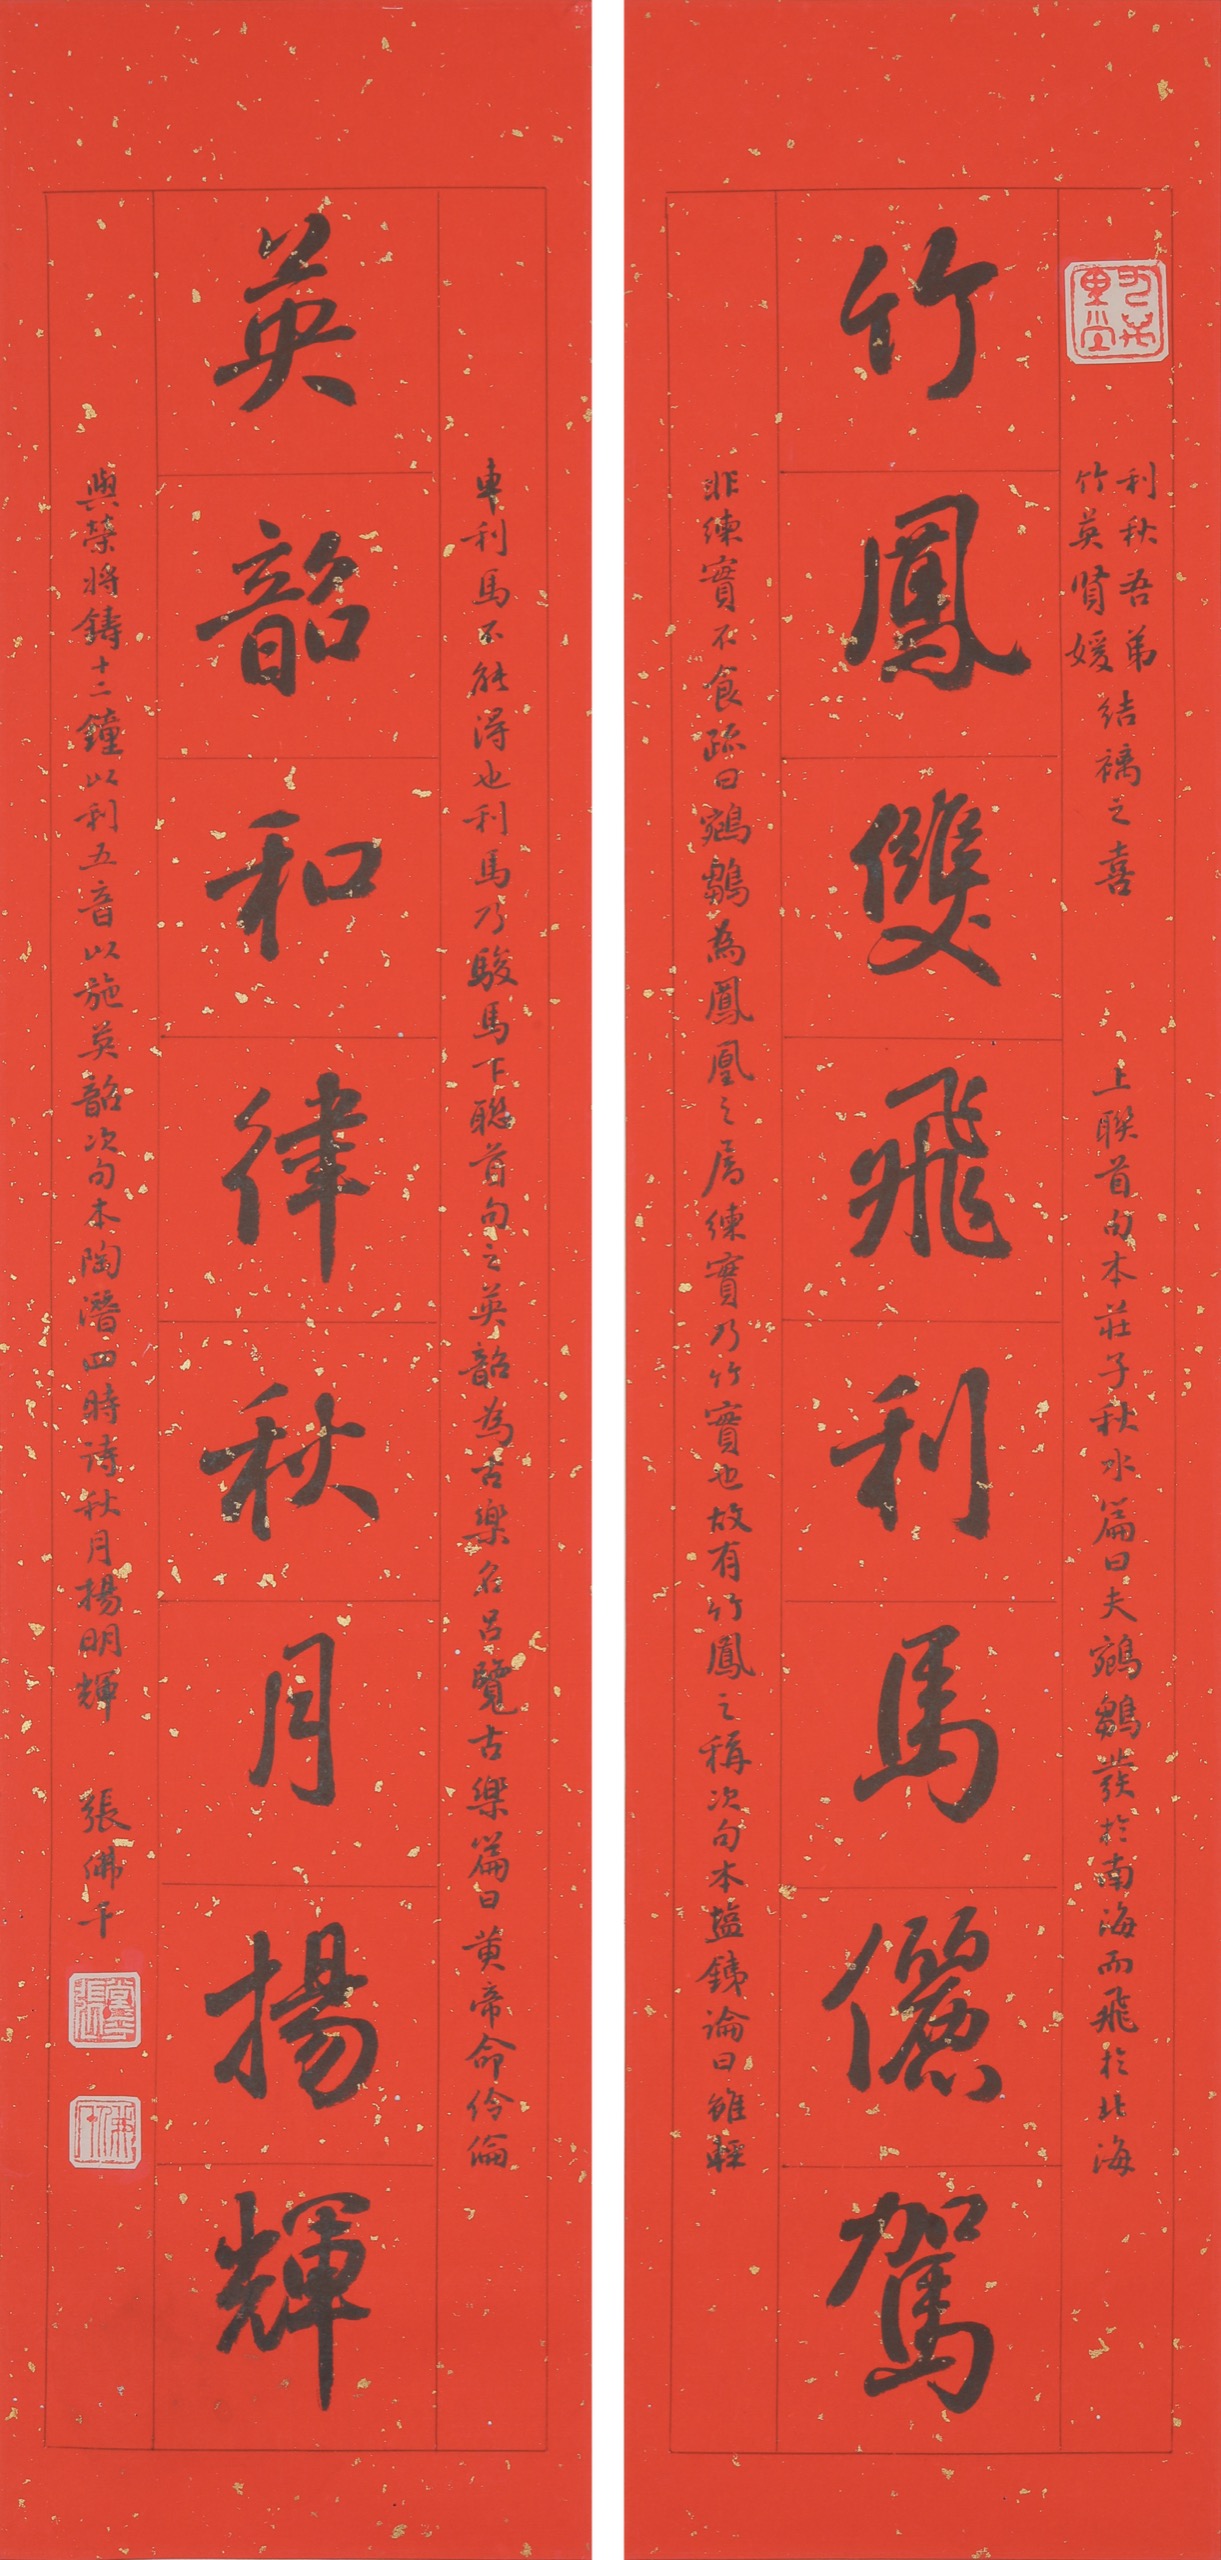 利秋吾弟
竹英賢媛
結褵之喜
上聯首句本莊子秋水篇曰夫鵷鶵發於南海而飛於北海
竹鳳雙飛利馬儷駕
非練實不食疏曰鵷鶵為鳳凰之屬練實乃竹實也故有竹鳳之稱次句本鹽鐵論曰雖輕
車利馬不能得也利馬乃駿馬下聯首句之英韶為古樂名呂覽古樂篇曰黃帝命伶倫
英韶和律秋月揚輝
與榮將鑄十二鐘以利五音以施英韶次句本陶潛四時詩秋月揚明輝
張佛千